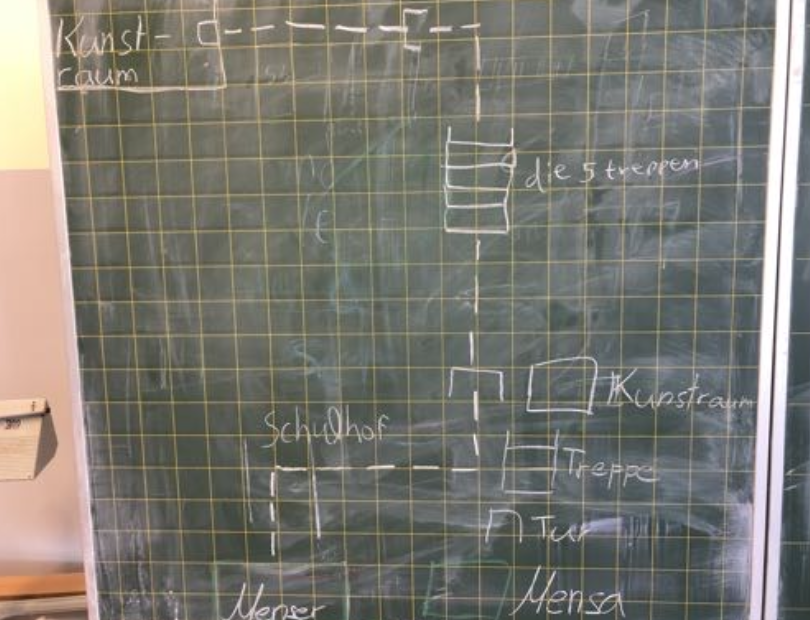 Kunst-
raum
die 5 treppen
Kunstraum
Schulhof
Treppe
Tur
Menser
Mensa